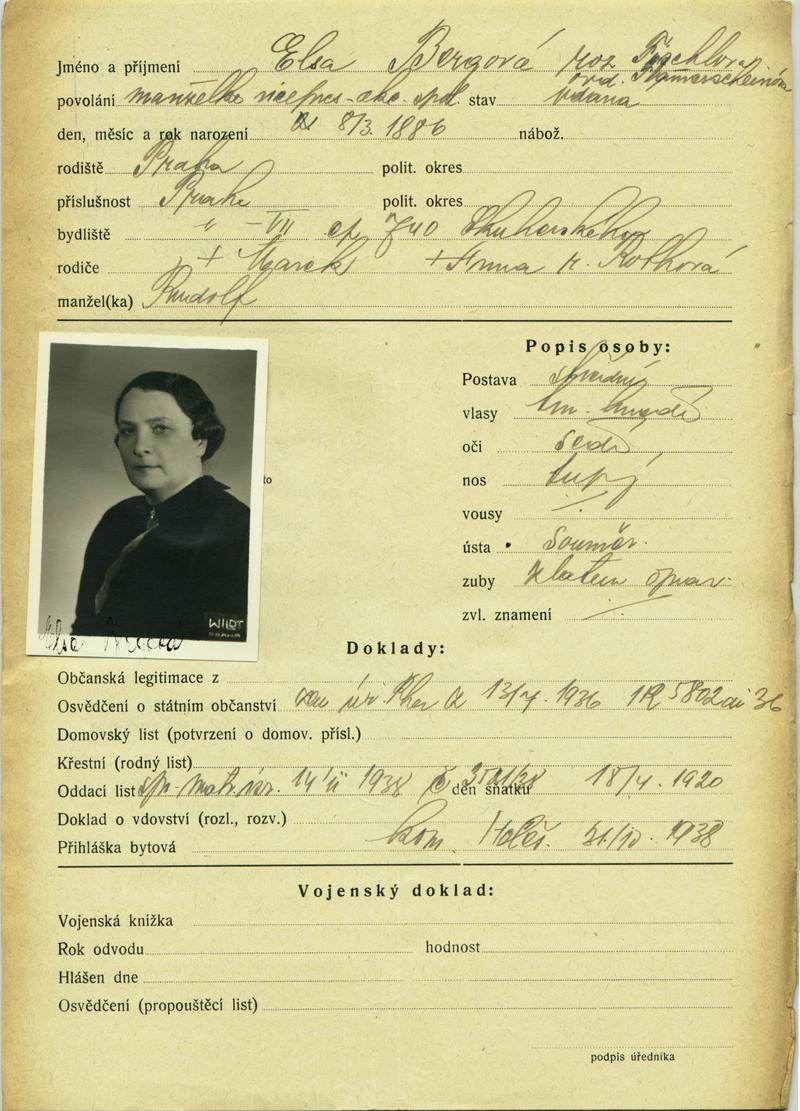 Jméno a příjmení Elsa Bergová roz.
ovd.
povolání manželka vicepres. akc. spol. stav vdaná
den, měsíc a rok narození 8/3. 1886 nábož.
rodiště Praha polit. okres
příslušnost Praha polit. okres
bydliště " - VII čp 740 Skuherského
rodiče + Marek + Anna r. Rothová
manžel(ka) Rudolf
to
WILDT
PRAHA
Elsa
Popis osoby:
Postava střední
vlasy tm. hnědé
oči šedé
nos tupý
vousy /.
ústa souměr.
zuby zlatem oprav.
zvl. znamení /.
Doklady:
Občanská legitimace z
Osvědčení o státním občanství zem. úř. Z 13/7. 1936 5802 ai 36
Domovský list (potvrzení o domov. přísl.)
Křestní (rodný list)
Oddací list matr. úř. 14/II 1938 č. den sňatku 18/4. 1920
Doklad o vdovství (rozl., rozv.)
Přihláška bytová kom. Holeš. 31/10. 1938
Vojenský doklad:
Vojenská knížka
Rok odvodu hodnost
Hlášen dne
Osvědčení (propouštěcí list)
podpis úředníka